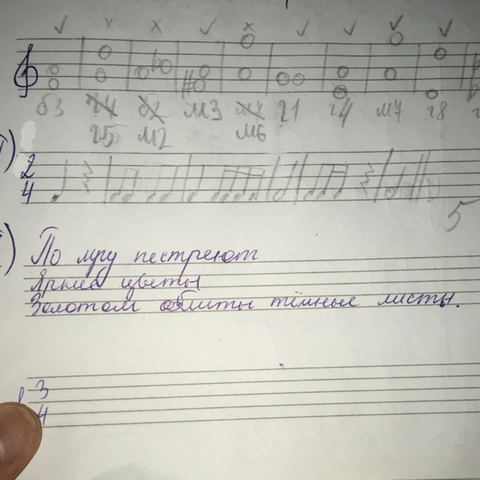 б3 м3 ч1 ч4 м7 ч8
ч5 м2 м6
2
4
5
По лугу пестреют
Яркие цветы
Золотом облиты тёмные листы.
3
4